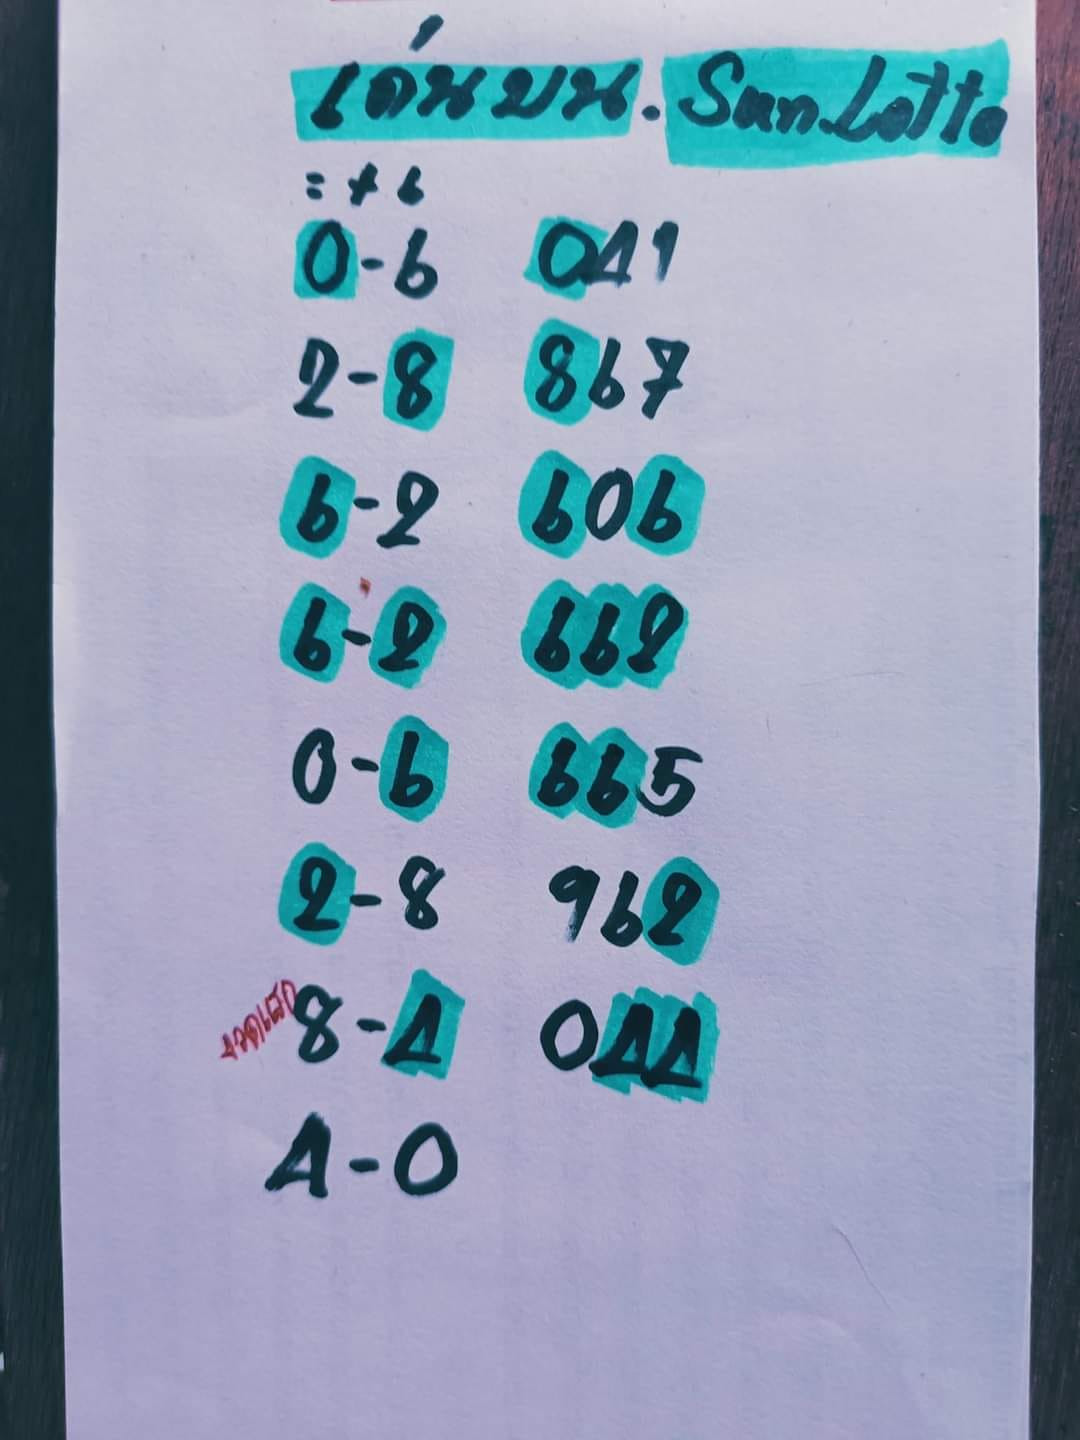 เด่นบน. Sun Lotto
= + 6
0-6 041
2-8 867
6-2 606
6-2 662
0-6 665
2-8 962
8-4 044
4-0